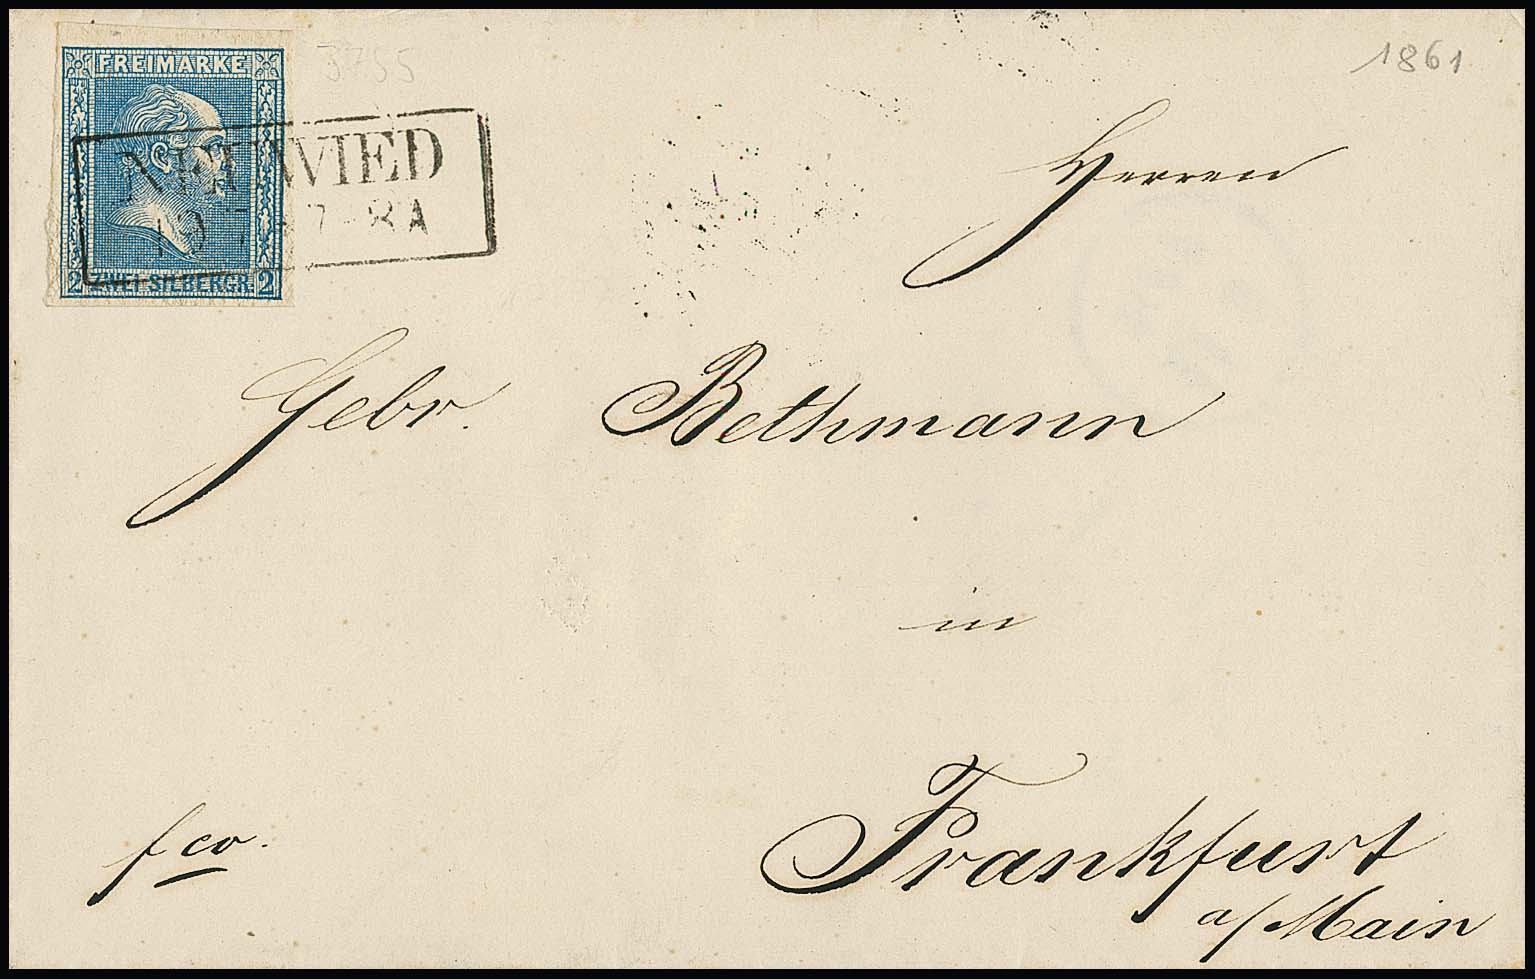 FREIMARKE
3755
1861
NEUWIED
7-8A
2 ZWEI SILBERGR. 2
Herren
Gebr. Bethmann
in
fco.
Frankfurt
a/Main